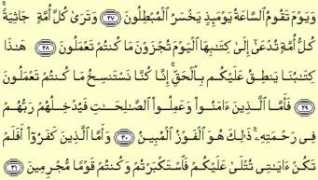 وَيَوْمَ تَقُومُ ٱلسَّاعَةُ يَوْمَئِذٍ يَخْسَرُ ٱلْمُبْطِلُونَ ٢٧ وَتَرَىٰ كُلَّ أُمَّةٍ جَاثِيَةً ۚ
كُلُّ أُمَّةٍ تُدْعَىٰٓ إِلَىٰ كِتَٰبِهَا ٱلْيَوْمَ تُجْزَوْنَ مَا كُنتُمْ تَعْمَلُونَ ٢٨ هَٰذَا
كِتَٰبُنَا يَنطِقُ عَلَيْكُم بِٱلْحَقِّ ۚ إِنَّا كُنَّا نَسْتَنسِخُ مَا كُنتُمْ تَعْمَلُونَ
٢٩ فَأَمَّا ٱلَّذِينَ ءَامَنُوا۟ وَعَمِلُوا۟ ٱلصَّٰلِحَٰتِ فَيُدْخِلُهُمْ رَبُّهُمْ
فِى رَحْمَتِهِۦ ۚ ذَٰلِكَ هُوَ ٱلْفَوْزُ ٱلْمُبِينُ ٣٠ وَأَمَّا ٱلَّذِينَ كَفَرُوٓا۟ أَفَلَمْ
تَكُنْ ءَايَٰتِى تُتْلَىٰ عَلَيْكُمْ فَٱسْتَكْبَرْتُمْ وَكُنتُمْ قَوْمًا مُّجْرِمِينَ ٣١